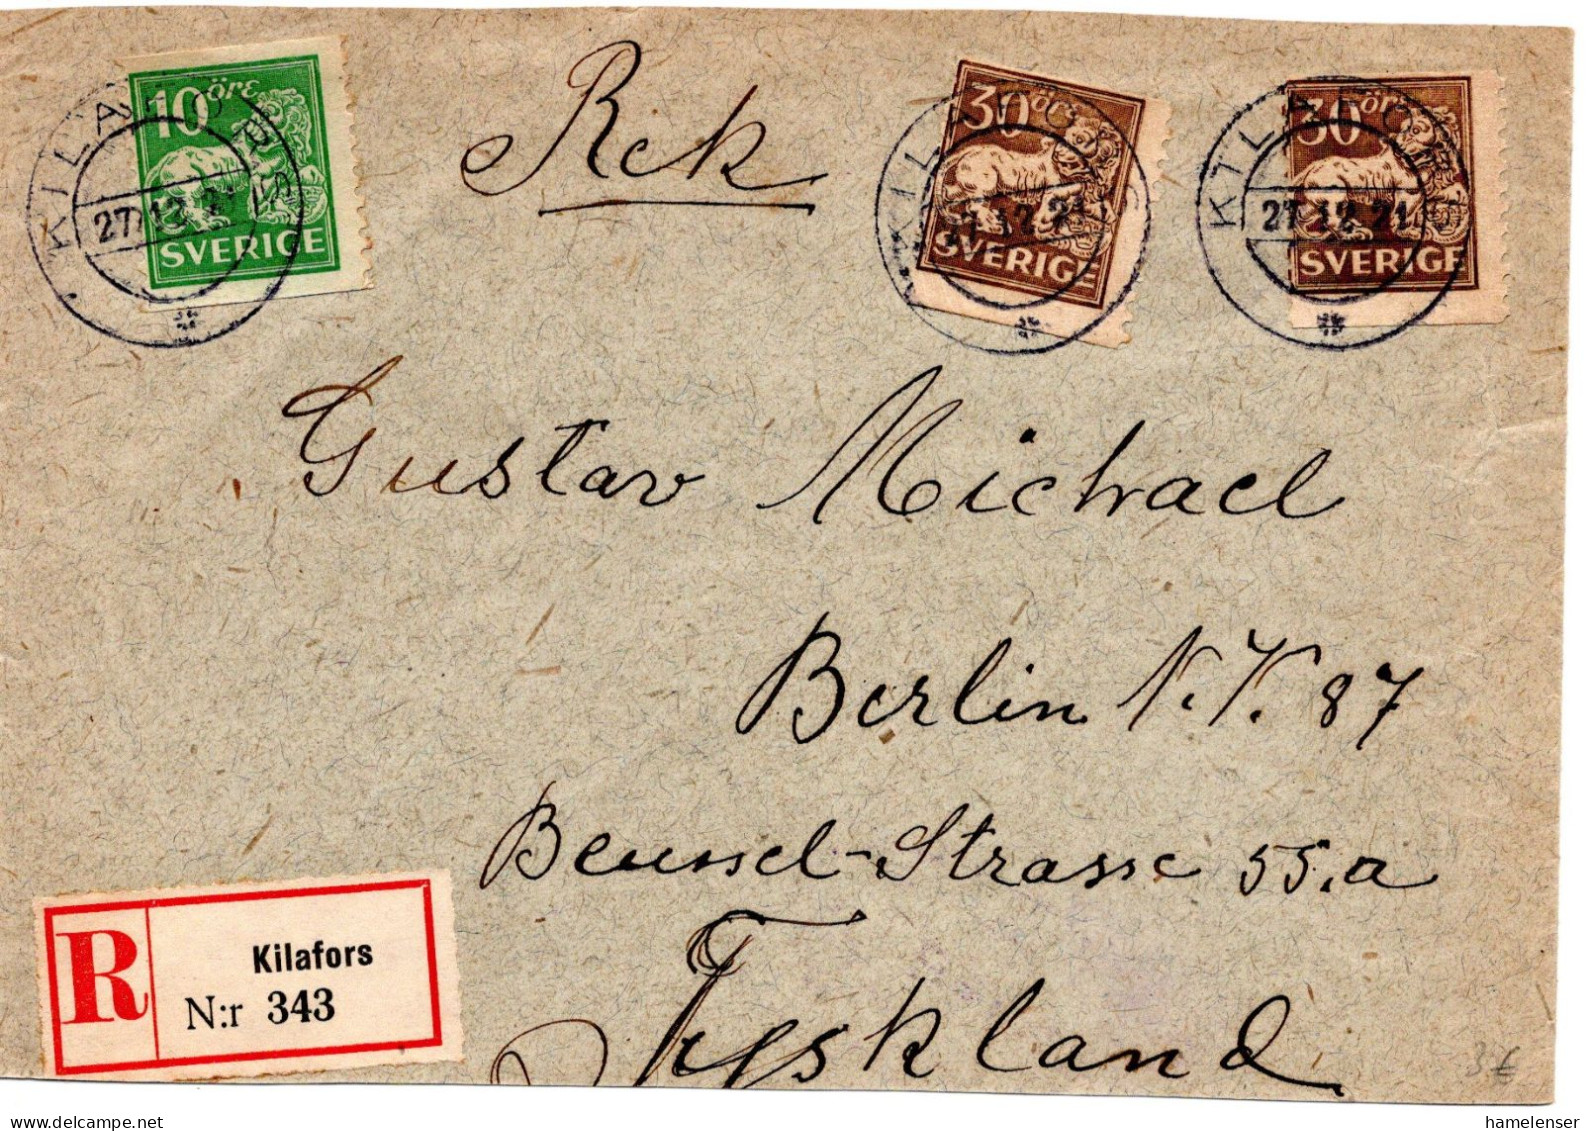 10 öre
SVERIGE
30 öre
SVERIGE
30 öre
SVERIGE
KILAFORS
27.12.21
KILAFORS
27.12.21
KILAFORS
27.12.21
Rek
Gustav Michael
Berlin N.W. 87
Beussel-Strasse 55.a
Tyskland
R
Kilafors
N:r 343
3€
hamelenser